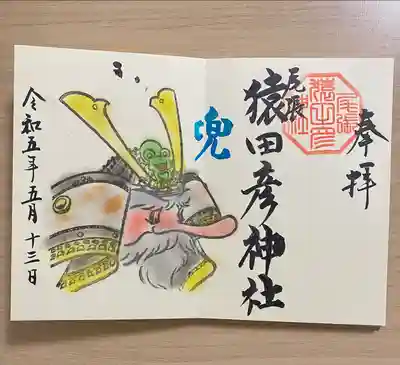 奉拝
尾張
猿田彦神社
尾張
猿田彦
神社
兜
令和五年五月十三日